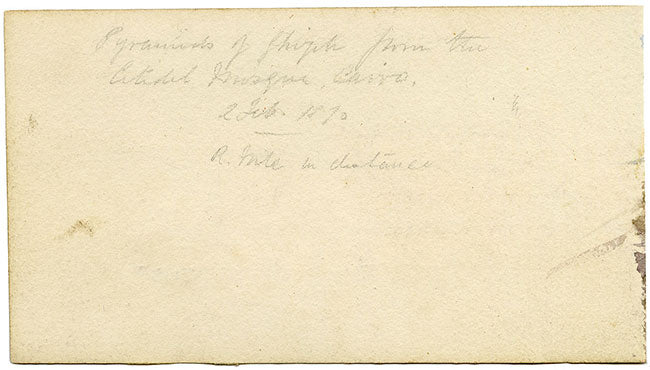 Pyramids of Ghizeh from the
Citadel Mosque, Cairo.
2 Feb. 1890.
R. Nile in distance